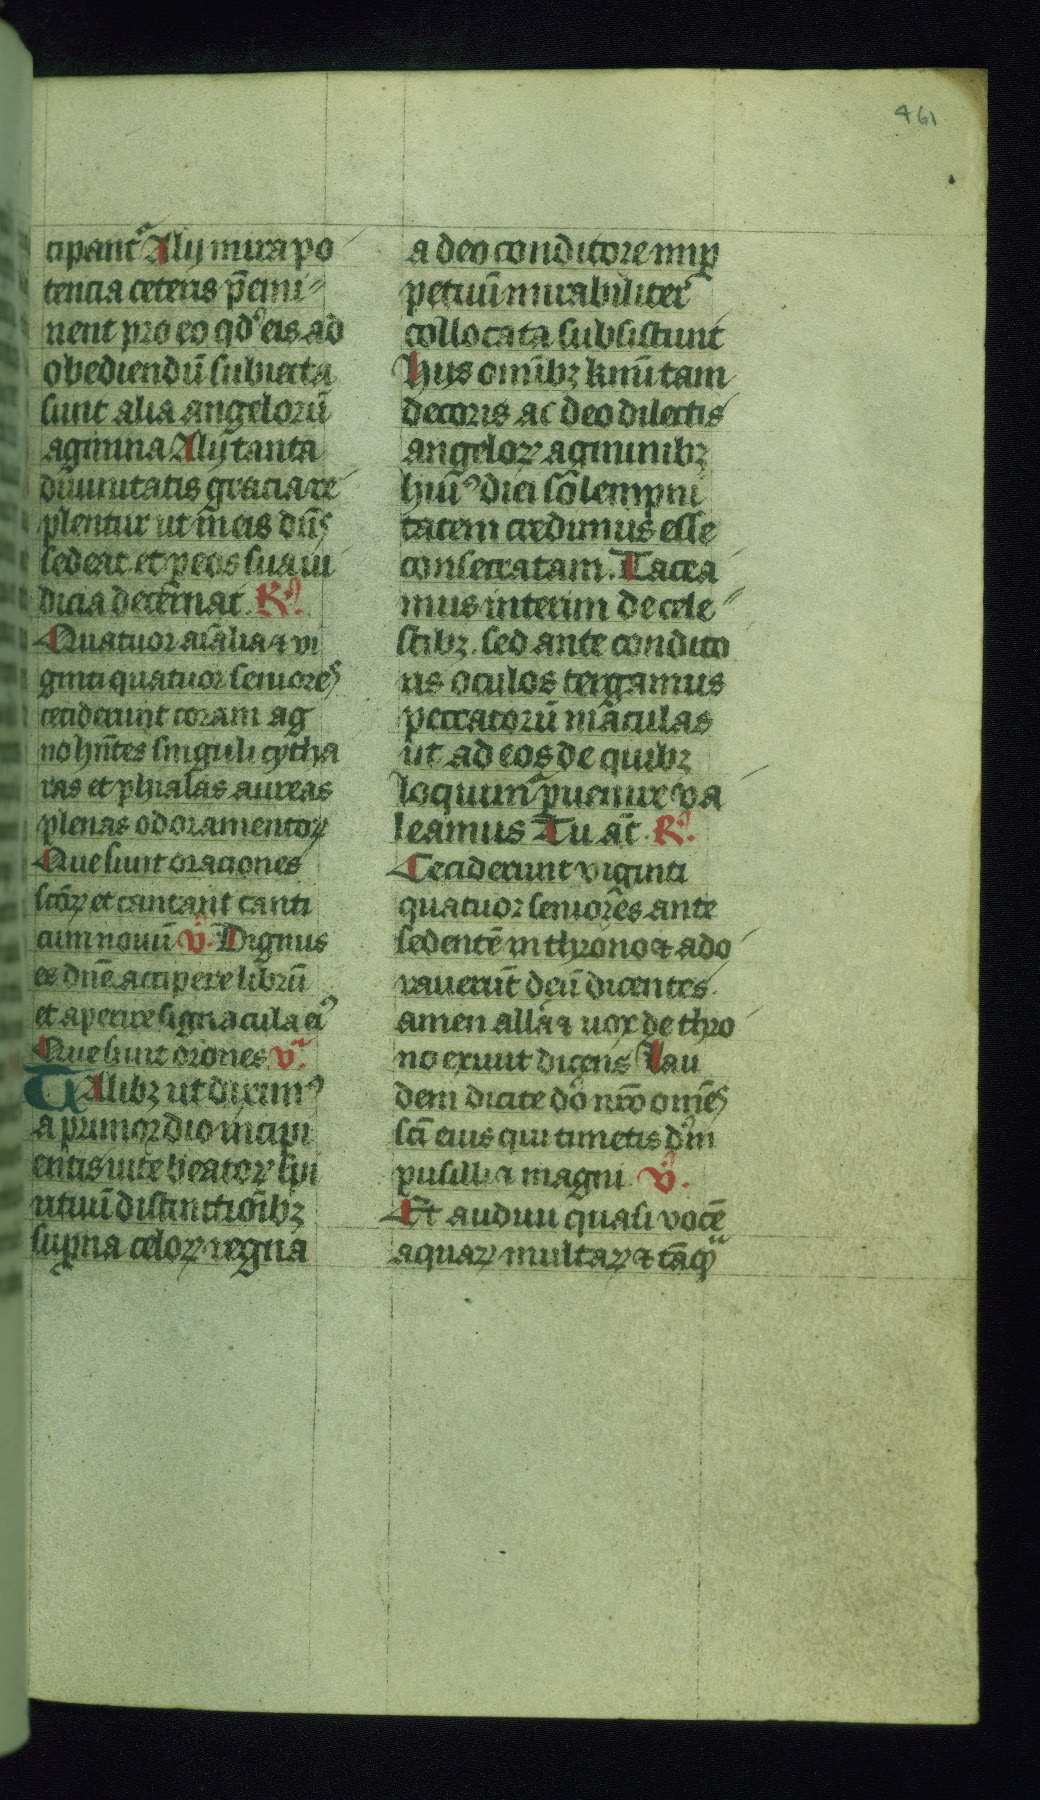 461
cipant᷑ Alij mira po
tencia ceteris p̄emi
nent pro eo qd' eis ad
obediendū subiecta
sunt alia angelorū
agmina Alij tanta
diuinitatis gracia re
plentur ut in eis dn̄s
sedeat et p eos sua iu
dicia decernat. R'.
Quatuor aīalia ⁊ vi
ginti quatuor seniores
ceciderunt coram ag
no hn̄tes singuli cytha
ras et phialas aureas
plenas odoramentoꝝ
Que sunt oraciones
sc̄oꝝ et cantant canti
cum nouū v̄. Dignus
es dn̄e accipere librū
et aperire signacula eiꝰ
Que sunt or̄ones. vͣ.
Talibꝫ ut diximꝰ
a primordio incipi
entis uite beatoꝝ sp̄i
rituū distinctiōibꝫ
suꝑna celoꝝ regna
a deo conditore in iꝑ
petuū mirabiliter
collocata subsistunt
Hijs omībꝫ knū tam
decoris ac deo dilectis
angeloꝝ agminibꝫ
huiꝰ diei sōlempni
tatem credimus esse
consecratam. Tacea
mus interim de cele
stibꝫ. sed ante condito
ris oculos tergamus
peccatorū maculas
ut ad eos de quibꝫ
loquimᷓ ꝑuenire va
leamus Tu aūt R'.
Ceciderunt viginti
quatuor seniores ante
sedentē in throno ⁊ ado
rauerūt deū dicentes.
amen alla ⁊ uox de thro
no exiuit dicens Lau
dem dicite dō nr̄o omēs
sc̄i eius qui timetis dm̄
pusilli ⁊ magni v̄.
Et audiui quasi vocē
aquaꝝ multaꝝ ⁊ tāqͣ